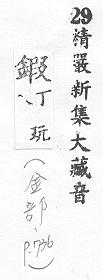 29精嚴新集大藏音
鍜
丁
玩
(金部,
p.736)